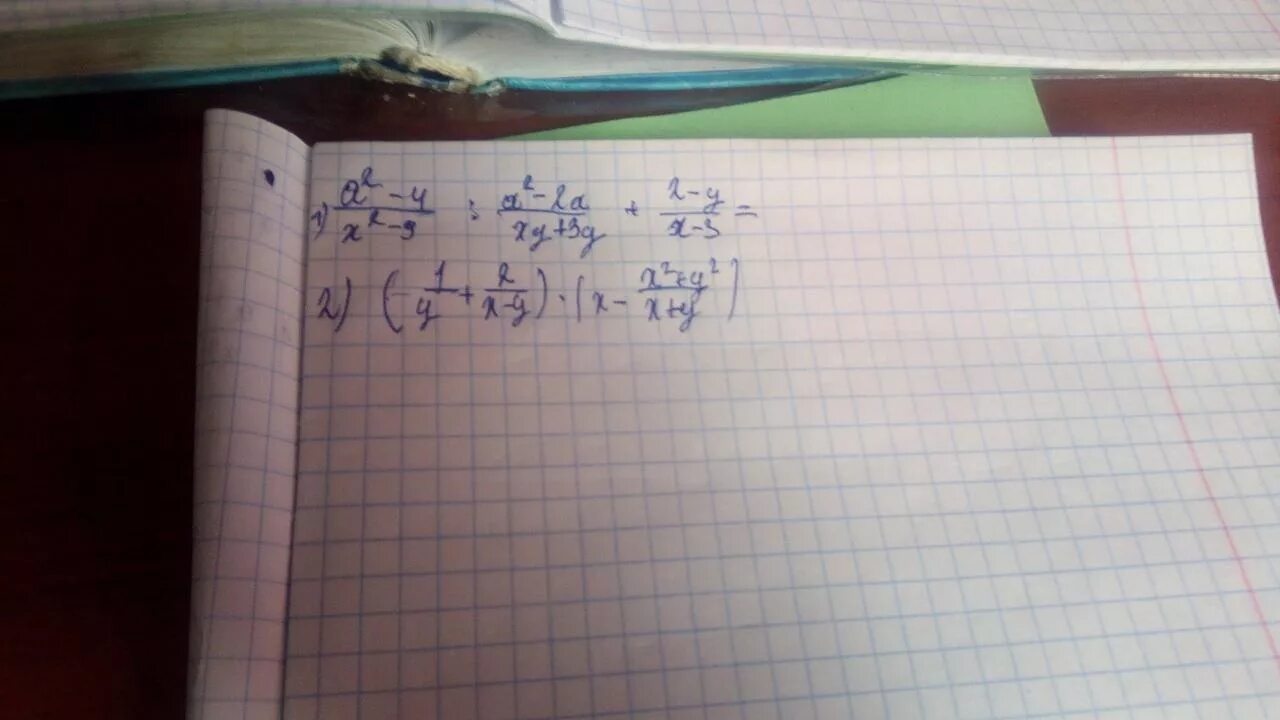 1) (a² - 4)/(x² - 9) : (a² - 2a)/(xy + 3y) + (2 - y)/(x - 3) =
2) (- 1/y + 2/(x - y)) · (x - (x² + y²)/(x + y))